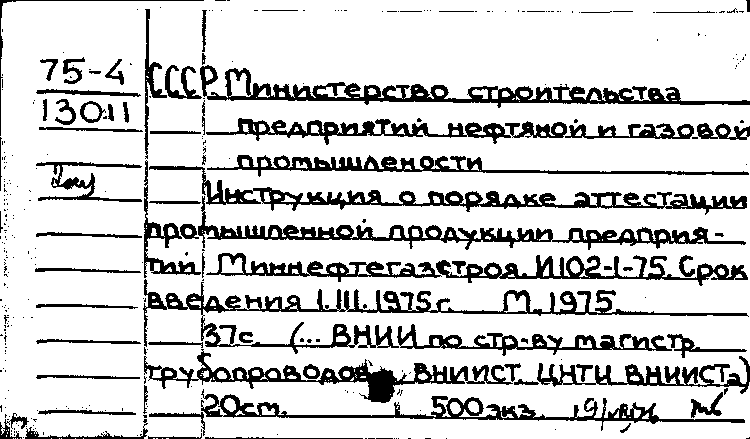 75-4 СССР. Министерство строительства
13011 предприятий нефтяной и газовой
промышлености
Инструкция о порядке аттестации
промышленной продукции предприя-
тий Миннефтегазстроя. И102-1-75. Срок
введения 1.III.1975г. М., 1975.
37с. (... ВНИИ по стр-ву магистр.
трубопроводов ВНИИСТ. ЦНТИ ВНИИСТа)
20см. 500экз.